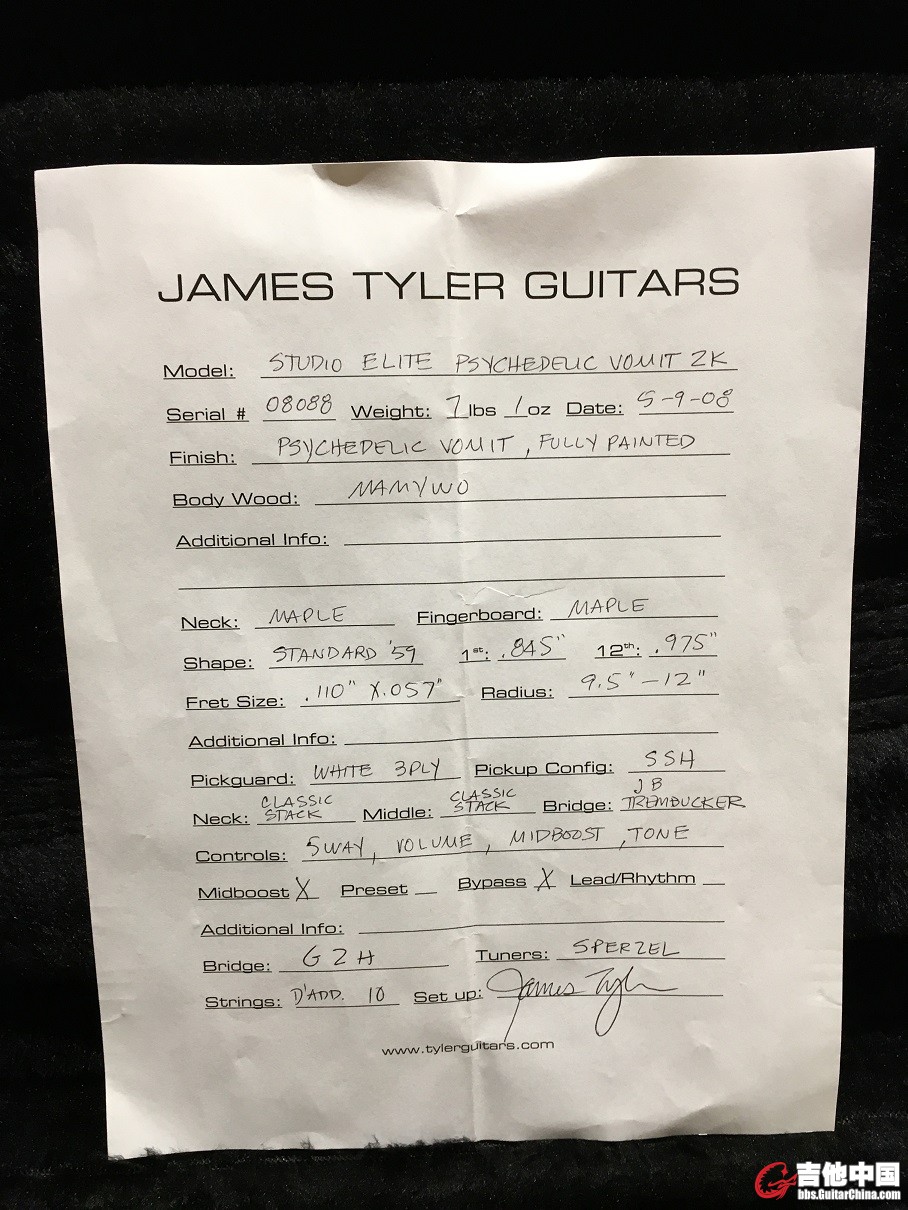 JAMES TYLER GUITARS
Model: STUDIO ELITE PSYCHEDELIC VOMIT 2K
Serial # 08088 Weight: 7 lbs 1 oz Date: 5-9-08
Finish: PSYCHEDELIC VOMIT, FULLY PAINTED
Body Wood: MAMYWO
Additional Info:
Neck: MAPLE Fingerboard: MAPLE
Shape: STANDARD '59 1st: .845" 12th: .975"
Fret Size: .110" X .057" Radius: 9.5" - 12"
Additional Info:
Pickguard: WHITE 3PLY Pickup Config: SSH
Neck: CLASSIC STACK Middle: CLASSIC STACK Bridge: JB TREMBUCKER
Controls: 5WAY, VOLUME, MIDBOOST, TONE
Midboost X Preset Bypass X Lead/Rhythm
Additional Info:
Bridge: G2H Tuners: SPERZEL
Strings: D'ADD. 10 Set up: James Tyler
www.tylerguitars.com
吉他中国
bbs.GuitarChina.com